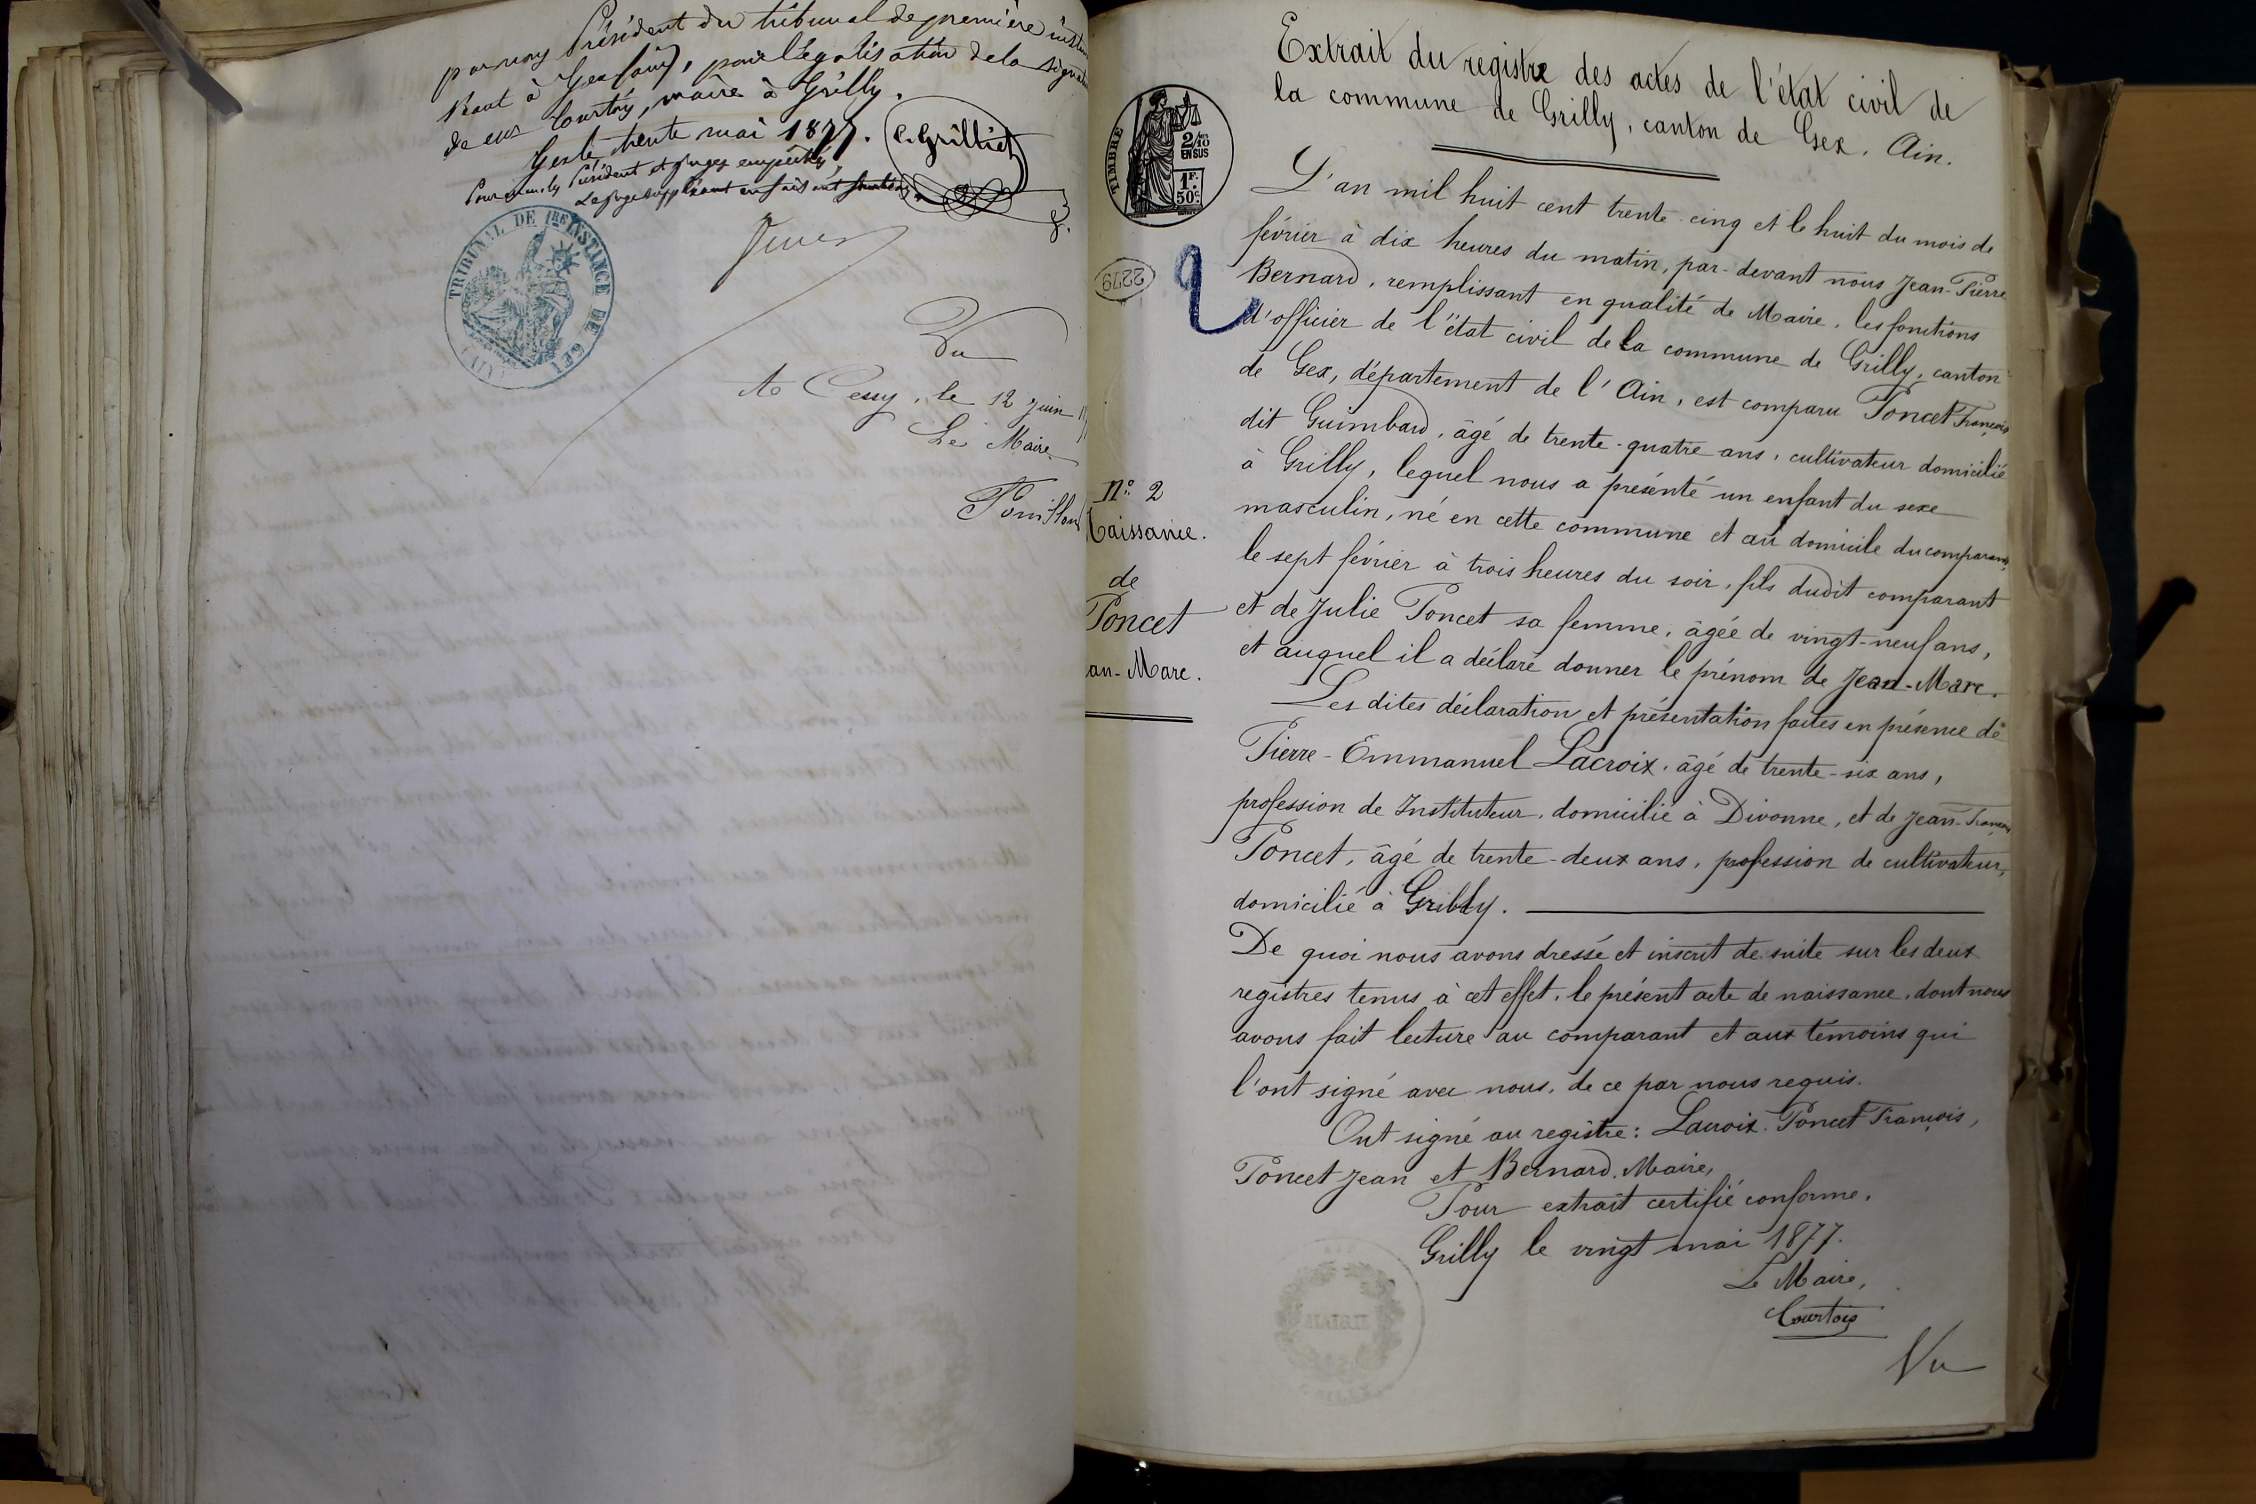 par nous Président du tribunal de première
séant à Gex (ain), pour légalisation de la
de eur Courtois, maire à Grilly.
Gex le trente mai 1877.
Pour Président et juges empêchés
Le juge suppléant
C. Grilliet
TRIBUNAL DE 1RE INSTANCE DE GEX
Vu
A Cessy, le 12 Juin
Le Maire
Extrait du registre des actes de l'état civil de
la commune de Grilly, canton de Gex, Ain.
TIMBRE
2/10
EN SUS
1F.
50c.
2279
2
L'an mil huit cent trente-cinq et le huit du mois de
février à dix heures du matin, par-devant nous Jean-Pierre
Bernard, remplissant en qualité de Maire, les fonctions
d'officier de l'état civil de la commune de Grilly, canton
de Gex, département de l'Ain, est comparu Poncet François
dit Guimbard, âgé de trente-quatre ans, cultivateur domicilié
à Grilly, lequel nous a présenté un enfant du sexe
masculin, né en cette commune et au domicile du comparant,
le sept février à trois heures du soir, fils dudit comparant
et de Julie Poncet sa femme, âgée de vingt-neuf ans,
et auquel il a déclaré donner le prénom de Jean-Marc.
Les dites déclaration et présentation faites en présence de
Pierre-Emmanuel Lacroix, âgé de trente-six ans,
profession de Instituteur, domicilié à Divonne, et de Jean-François
Poncet, âgé de trente-deux ans, profession de cultivateur,
domicilié à Grilly.
De quoi nous avons dressé et inscrit de suite sur les deux
registres tenus à cet effet, le présent acte de naissance, dont nous
avons fait lecture au comparant et aux témoins qui
l'ont signé avec nous, de ce par nous requis.
Ont signé au registre: Lacroix. Poncet François,
Poncet Jean et Bernard, Maire,
Pour extrait certifié conforme,
Grilly le vingt mai 1877.
Le Maire,
Courtois
Vu
MAIRIE
No. 2
Naissance.
de
Poncet
an-Marc.